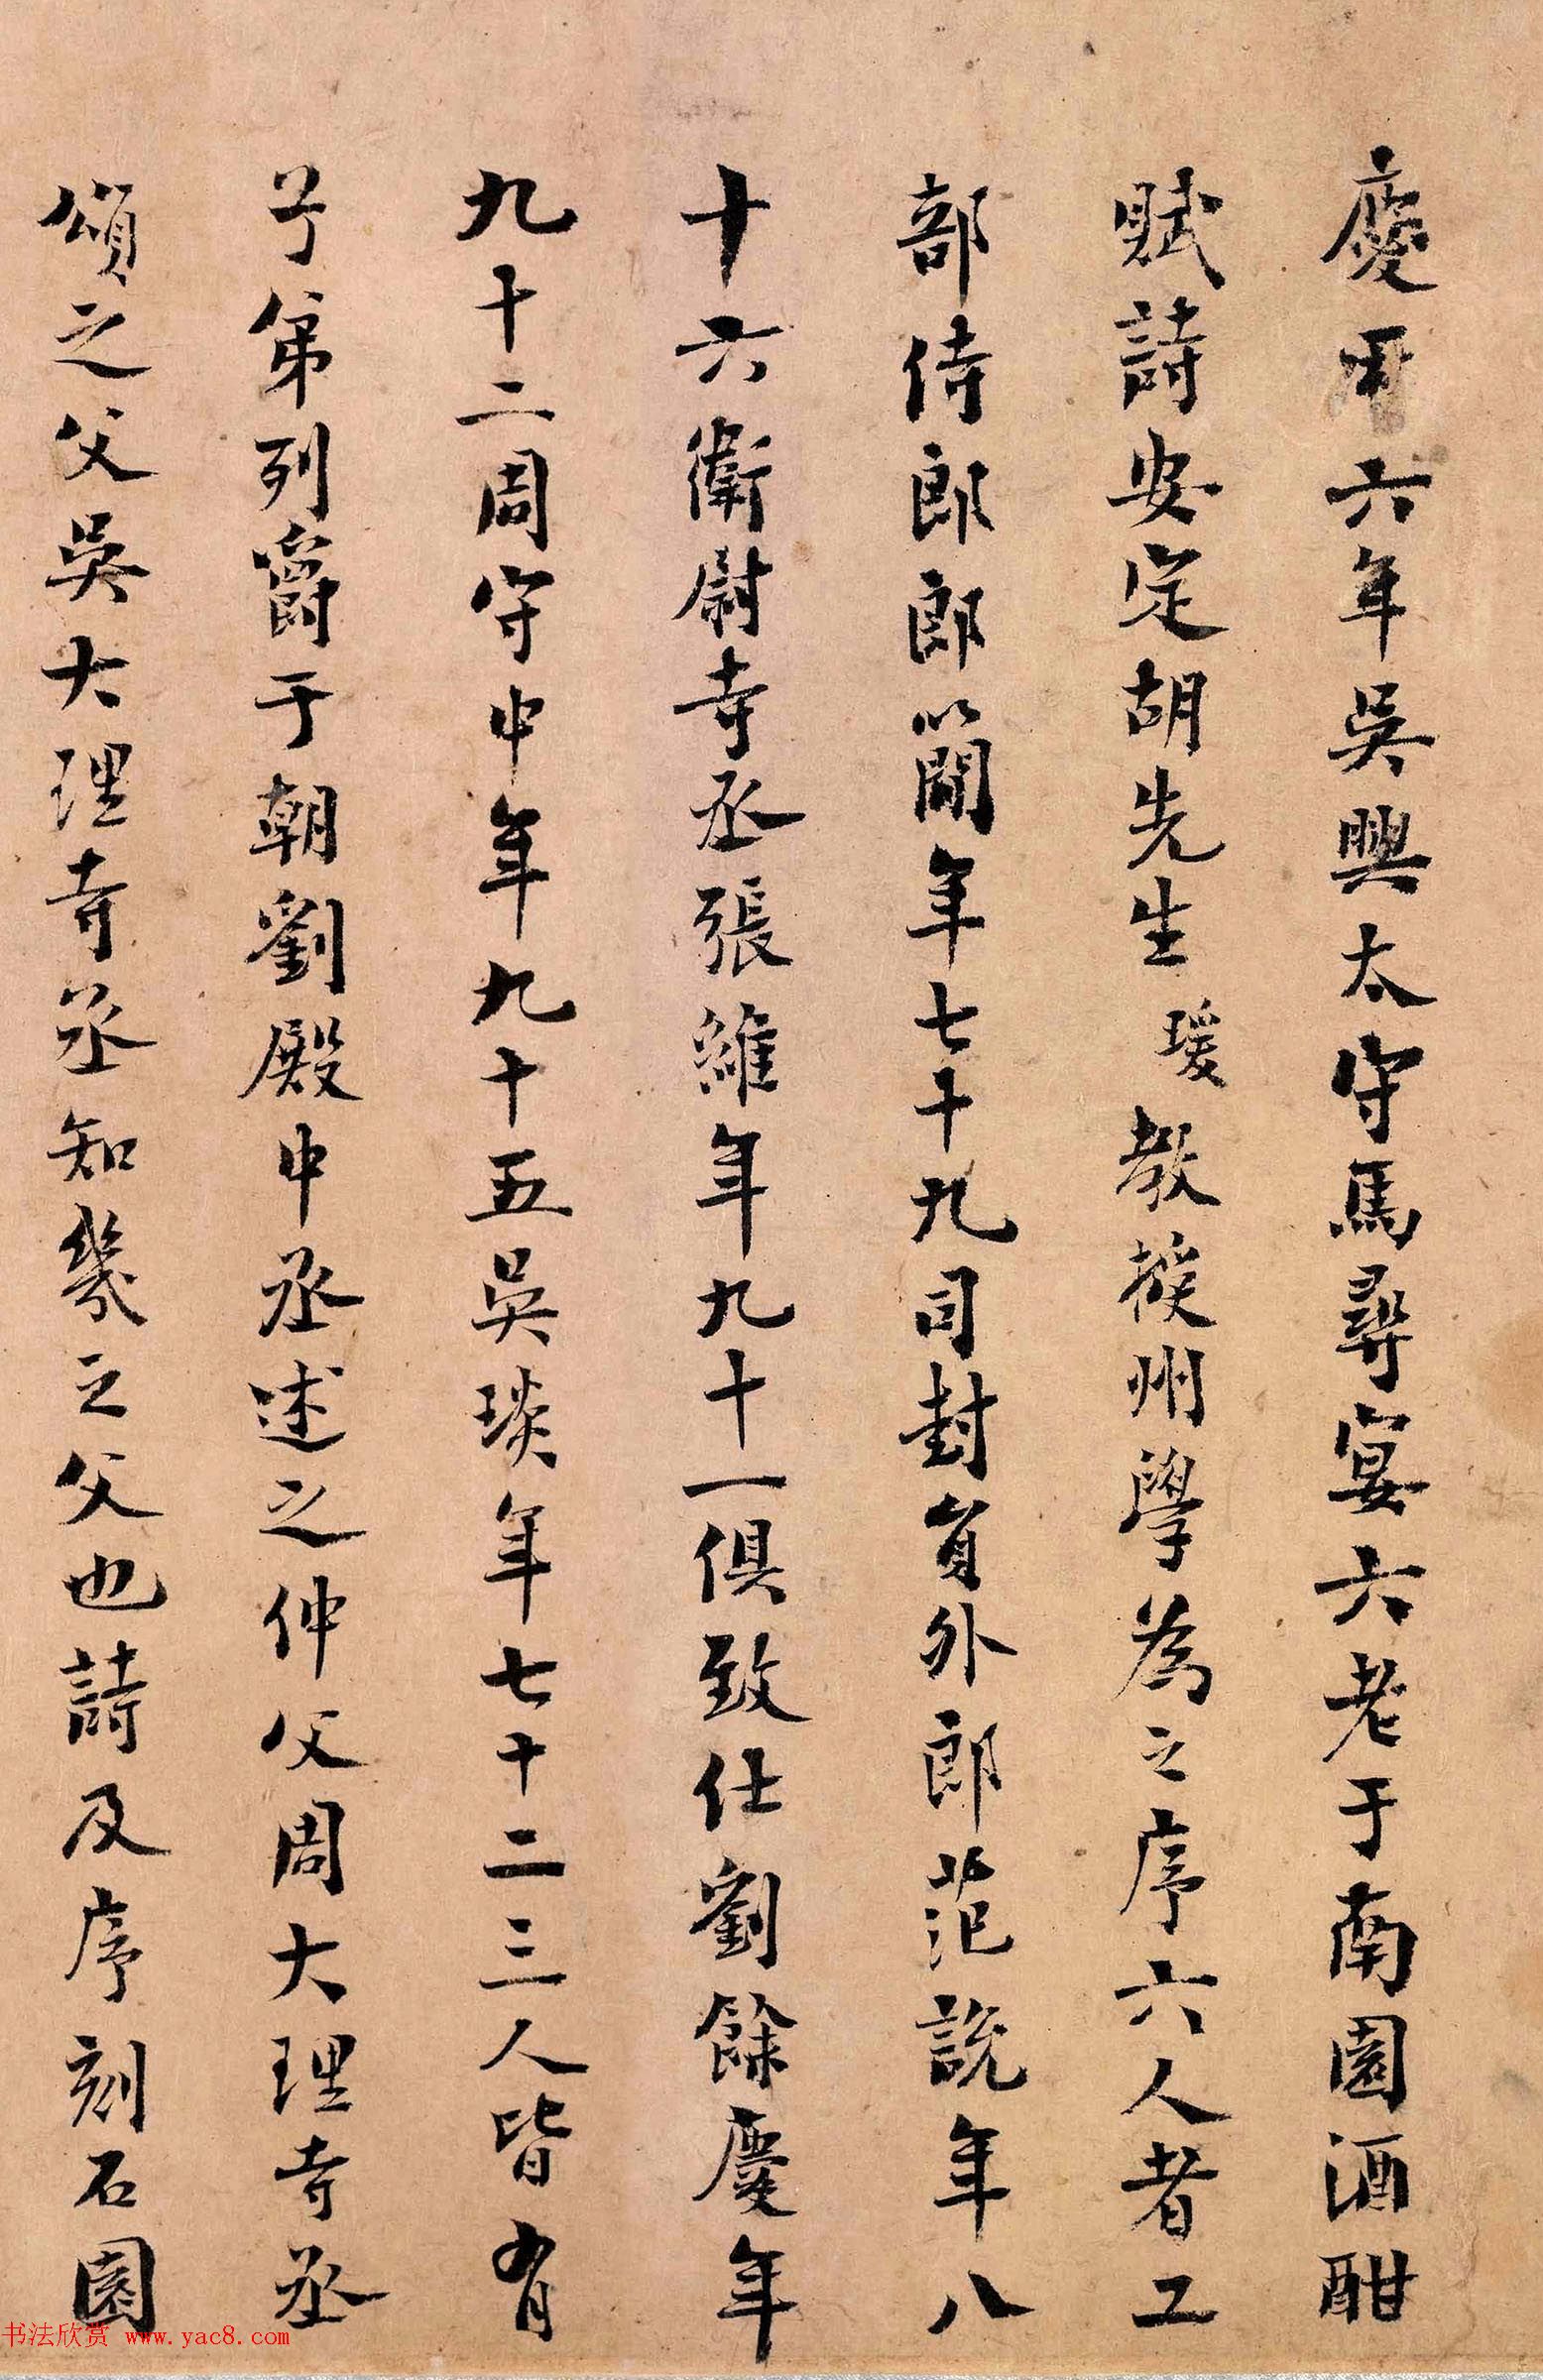 慶曆六年吳興太守馬尋宴六老于南園酒酣
賦詩安定胡先生瑗教授州學為之序六人者工
部侍郎郎簡年七十九司封員外郎范說年八
十六衛尉寺丞張維年九十一俱致仕劉餘慶年
九十二周守中年九十五吳琰年七十二三人皆有
子弟列爵于朝劉殿中丞述之仲父周大理寺丞
頌之父吳大理寺丞知幾之父也詩及序刻石園
书法欣赏 www.yac8.com